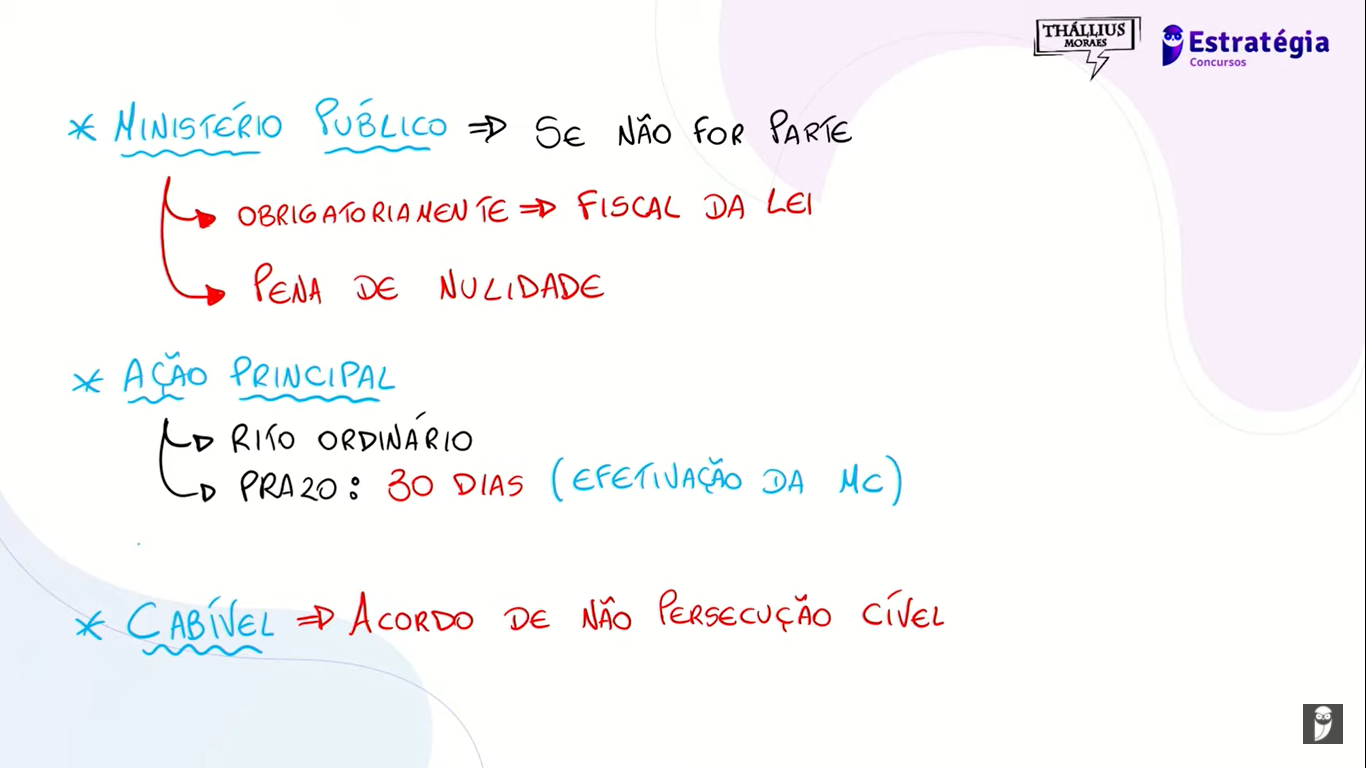 THÁLLIUS
MORAES
Estratégia
Concursos
* MINISTÉRIO PÚBLICO ⇒ SE NÃO FOR PARTE
OBRIGATORIAMENTE ⇒ FISCAL DA LEI
PENA DE NULIDADE
* AÇÃO PRINCIPAL
RITO ORDINÁRIO
PRAZO: 30 DIAS (EFETIVAÇÃO DA MC)
* CABÍVEL ⇒ ACORDO DE NÃO PERSECUÇÃO CÍVEL